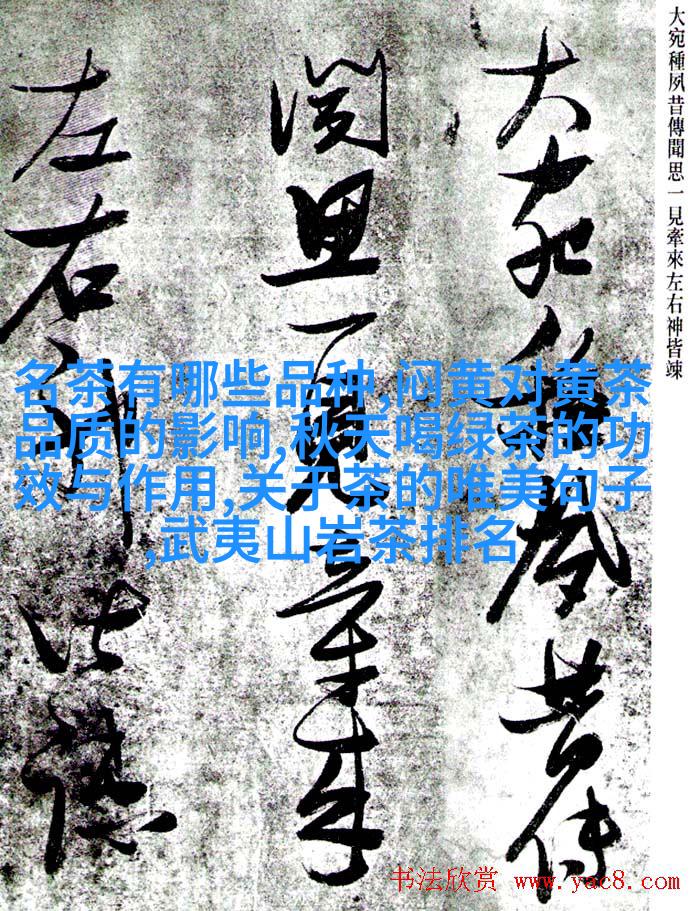 大宛種夙昔傳
聞思一見牽來
左右神皆竦
大宛種夙昔傳聞思一見牽來左右神皆竦
名茶有哪些品种,闷黄对黄茶
品质的影响,秋天喝绿茶的功
效与作用,关于茶的唯美句子
,武夷山岩茶排名
书法欣赏 www.yac8.com